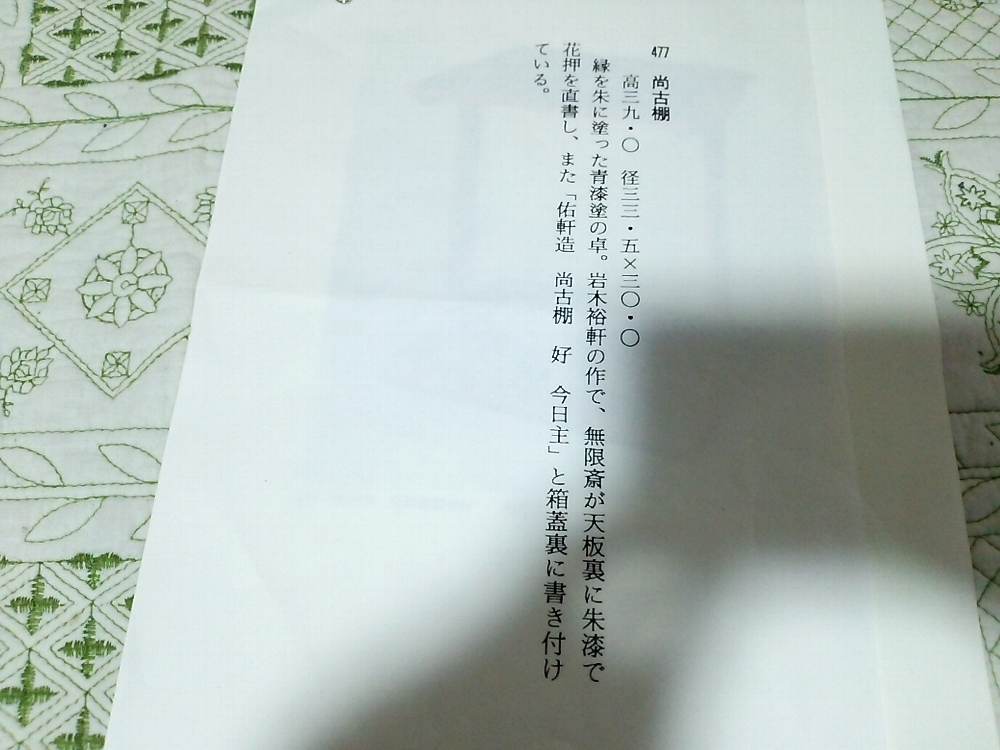 477 尚古棚
高三九・〇 径三三・五×三〇・〇
縁を朱に塗った青漆塗の卓。岩木裕軒の作で、無限斎が天板裏に朱漆で
花押を直書し、また「佑軒造 尚古棚 好 今日主」と箱蓋裏に書き付け
ている。